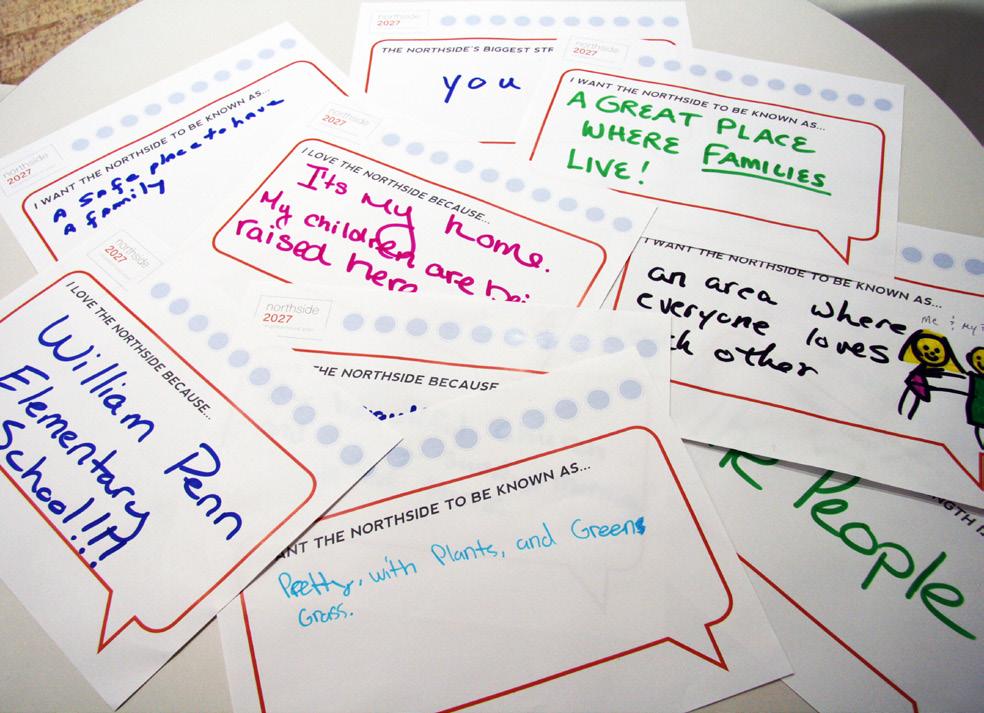 northside
2027
THE NORTHSIDE'S BIGGEST STR
you
northside
2027
I WANT THE NORTHSIDE TO BE KNOWN AS...
A GREAT PLACE
WHERE FAMILIES
LIVE!
northside
2027
I WANT THE NORTHSIDE TO BE KNOWN AS...
a safe place to have
a family
northside
2027
I LOVE THE NORTHSIDE BECAUSE...
It's my home.
My children are bei
raised here
I WANT THE NORTHSIDE TO BE KNOWN AS...
an area where
everyone loves
ch other
Me & My
northside
2027
I LOVE THE NORTHSIDE BECAUSE...
William Penn
Elementary
School!!!!
northside
2027
THE NORTHSIDE BECAUSE
ANT THE NORTHSIDE TO BE KNOWN AS...
Pretty, with Plants, and Greens
Grass.
NGTH IS
R People